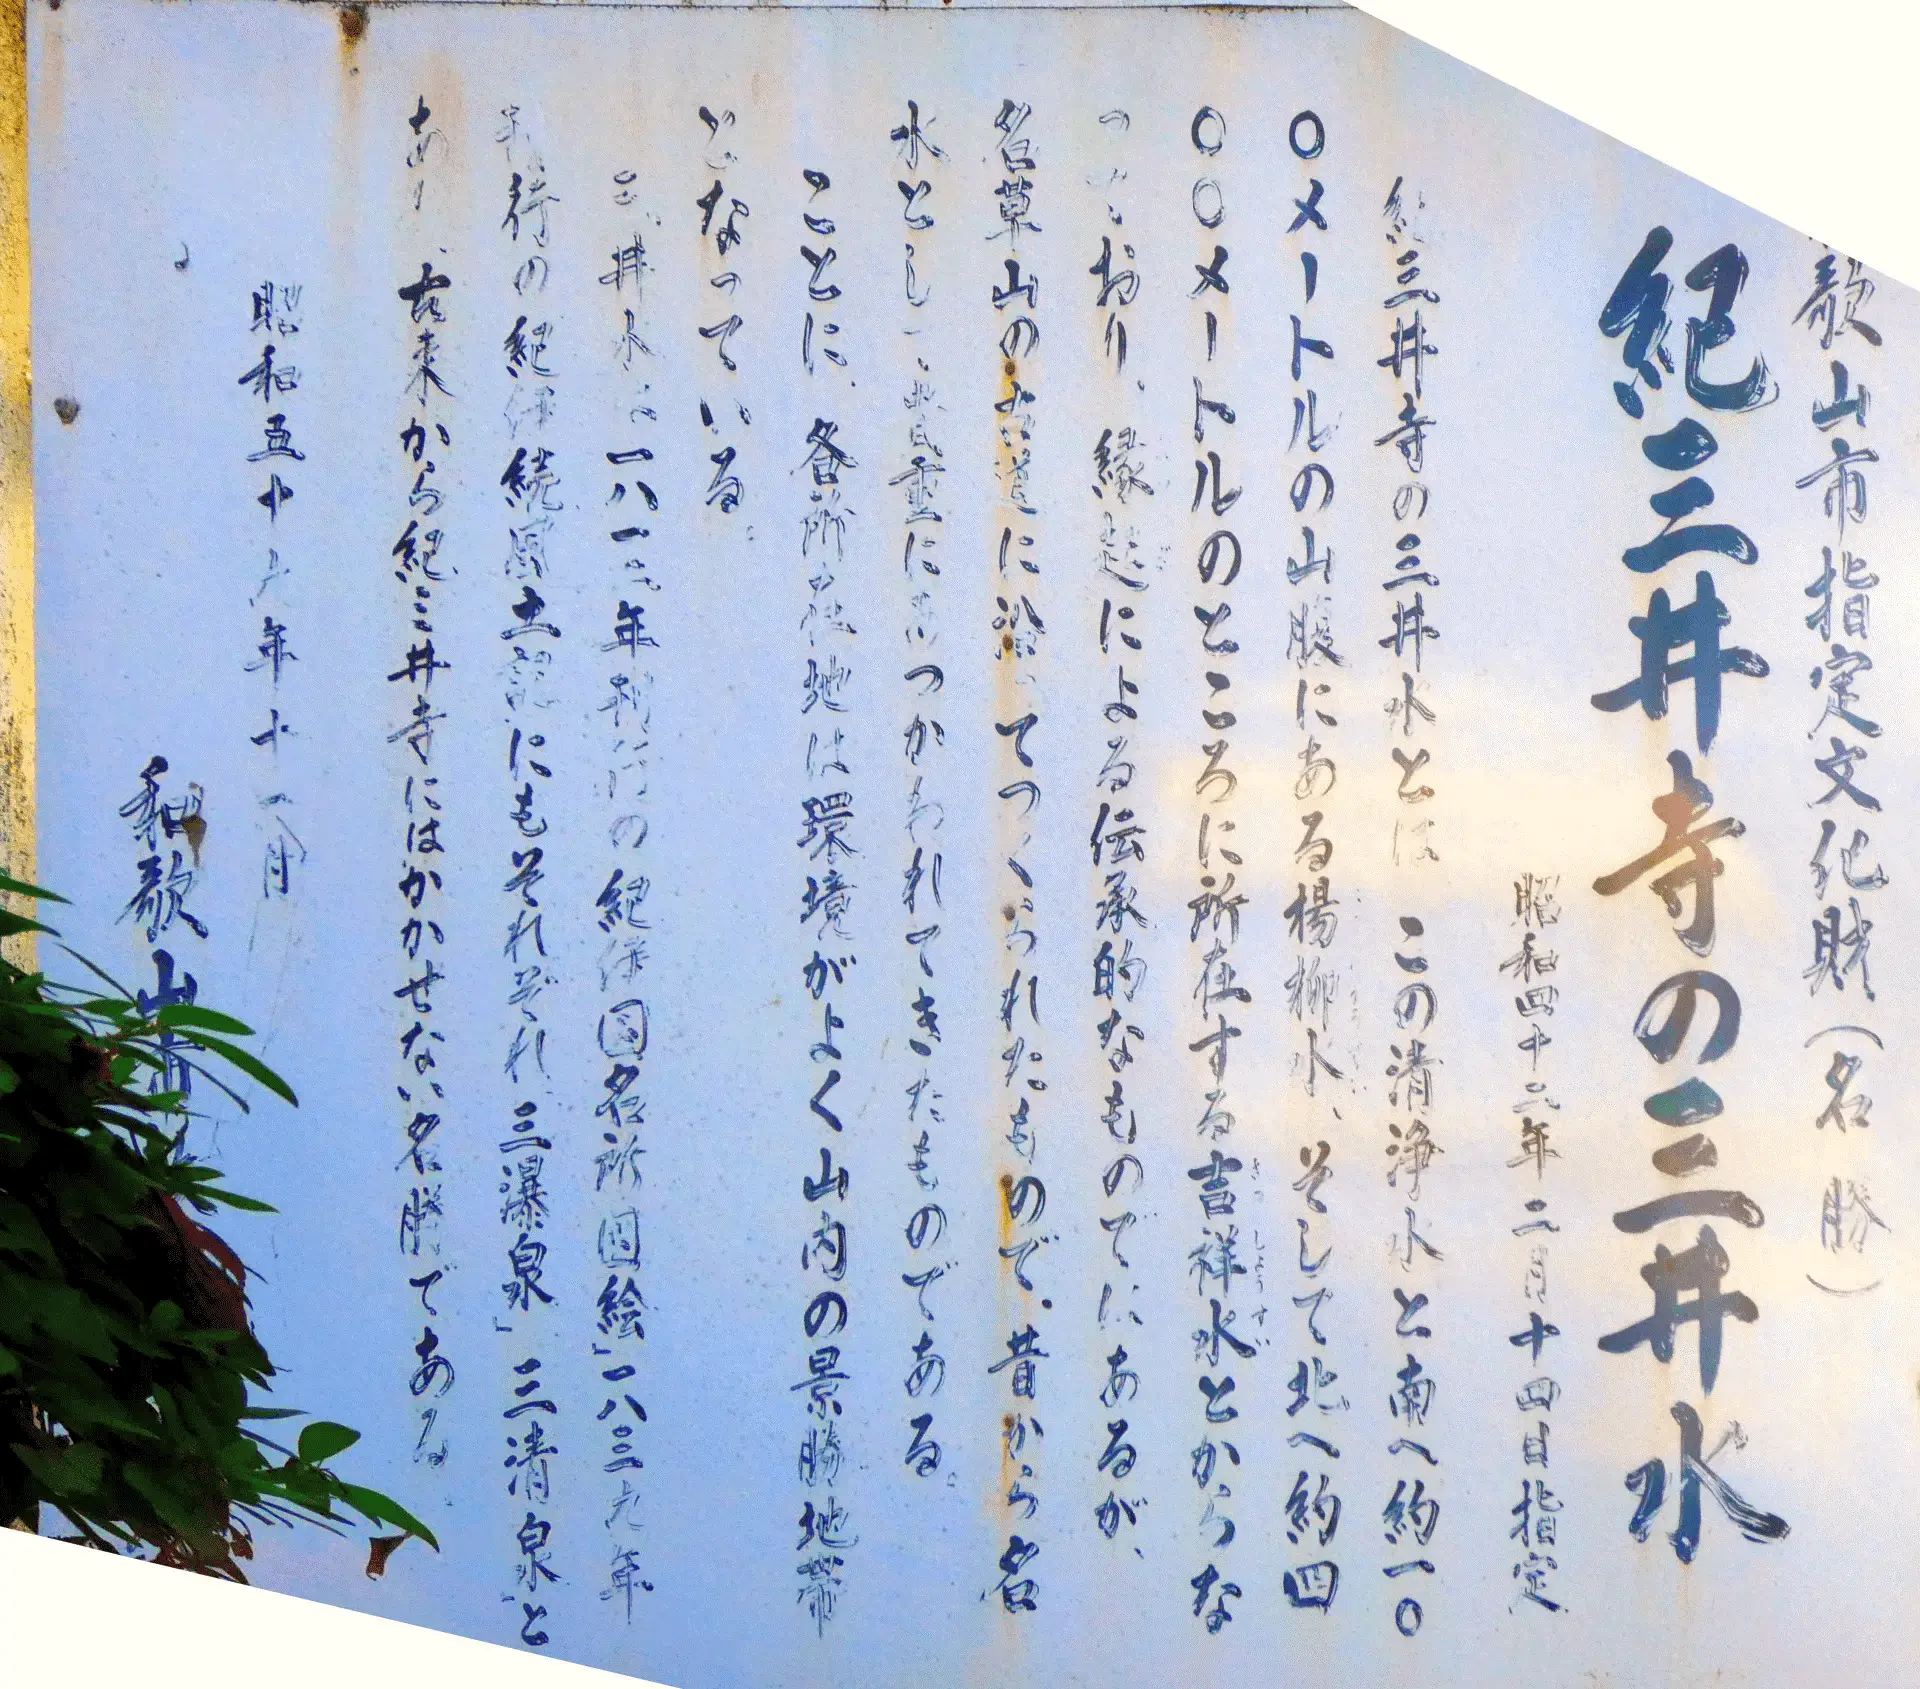 歌山市指定文化財（名勝）
紀三井寺の三井水
昭和四十三年二月十四日指定
紀三井寺の三井水とは この清浄水と南へ約一〇
〇メートルの山腹にある楊柳水、そして北へ約四
〇〇メートルのところに所在する吉祥水とからな
きっしょうすい
っており、縁起による伝承的なものでにあるが、
名草山の古道に沿ってつくられたもので、昔から名
水とし 、貴重に つかわれてきたものである。
ことに、各所 在地は環境がよく山内の景勝地帯
となっている。
三井水は一八一二年刊行の紀伊国名所図絵」一八三九年
刊行の紀伊続風土記にもそれぞれ、三瀑泉」三清泉と
あり、古来から紀三井寺にはかかせない名勝である。
昭和五十六年十一月
和歌山市